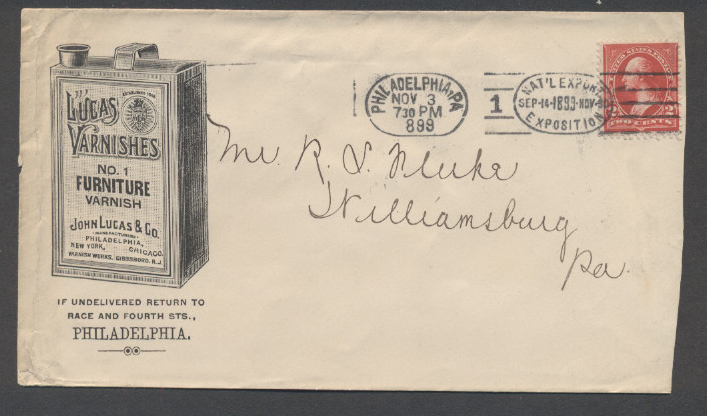 ESTABLISHED 1849
LUCAS
VARNISHES
NO. 1
FURNITURE
VARNISH
JOHN LUCAS & CO.
MANUFACTURERS
PHILADELPHIA,
NEW YORK, CHICAGO.
VARNISH WORKS, GIBBSBORO, N.J.
IF UNDELIVERED RETURN TO
RACE AND FOURTH STS.,
PHILADELPHIA.
PHILADELPHIA, PA
NOV 3
730 PM
899
1
NAT'L EXPORT
SEP-14-1899-NOV-30
EXPOSITION
TWO CENTS
Mr. R. S.
Williamsburg
Pa.